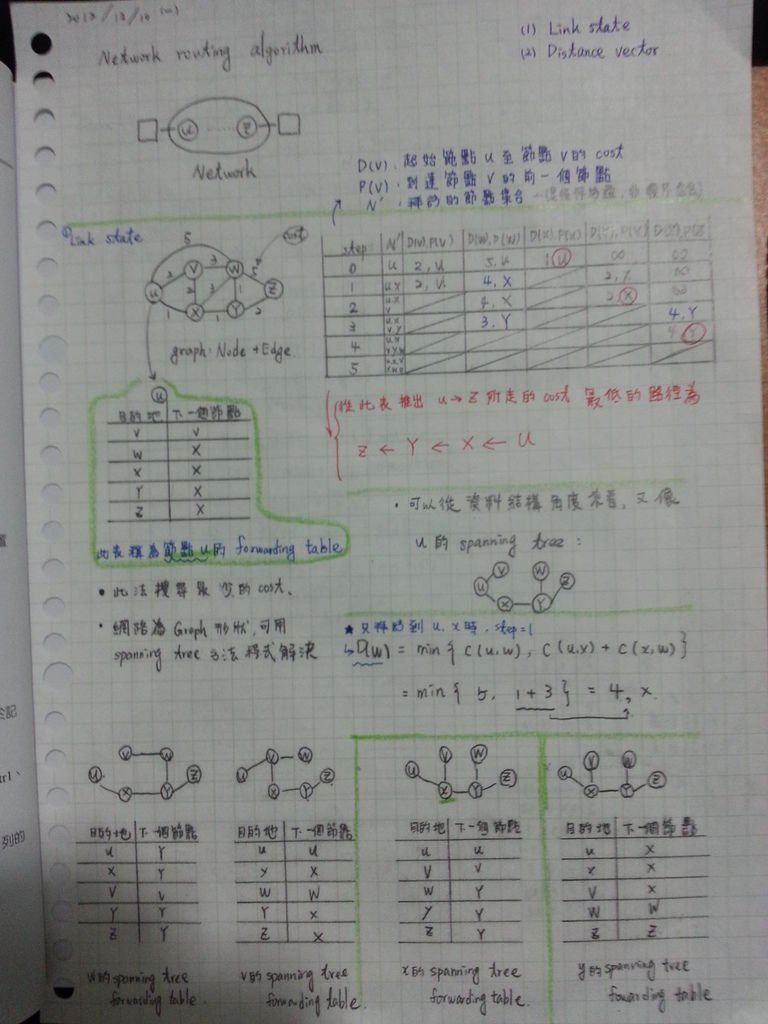 2013/12/10 (二)
(1) Link state
(2) Distance vector
Network routing algorithm
u ...... z
Network
D(V): 起始節點 u 至節點 V 的 cost
P(V): 到達節點 V 的前一個節點
N' : 拜訪的節點集合
Link state
5
cost
2 V 3 W 5
u 2 3 1 Z
1 X 1 Y 2
graph: Node + Edge
step N' D(V),P(V) D(W),P(W) D(X),P(X) D(Y),P(Y) D(Z),P(Z)
0 u 2, u 5, u 1, u ∞ ∞
1 u.x 2, u 4, X 2, X ∞
2 u.x V 4, X 2, X ∞
3 u.x V.Y 3, Y 4, Y
4 u.x V.Y.W 4, Y
5
從此表推出 u → Z 所走的 cost 最低的路徑為
Z ← Y ← X ← U
u
目的地 下一個節點
V V
W X
X X
Y X
Z X
此表稱為節點 u 的 forwarding table
• 可以從資料結構角度來看, 又像
u 的 spanning tree :
V W
u Z
X Y
• 此法搜尋最少的 cost.
• 網路為 Graph 形狀, 可用
spanning tree 方法程式解決
★ 只拜訪到 u, x 時, step=1
↳ D(w) = min{ C(u,w), C(u,x) + C(x,w) }
= min{ 5, 1+3 } = 4, x.
V W
u Z
X Y
目的地 下一個節點
u Y
X Y
V V
Y Y
Z Y
w的 spanning tree
forwarding table.
V W
u Z
X Y
目的地 下一個節點
u u
x X
W W
Y x
Z X
v的 spanning tree
forwarding table.
V W
u Z
X Y
目的地 下一個節點
u u
V V
W Y
Y Y
Z Y
x的 spanning tree
forwarding table.
V W
u Z
X Y
目的地 下一個節點
u X
x X
V X
W W
Z Z
y的 spanning tree
forwarding table